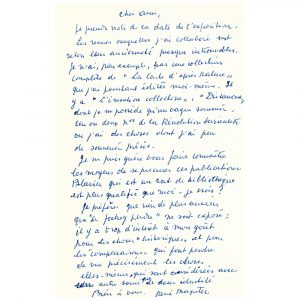 Cher ami,
Je prends note de la date de l'exposition.
Les revues auxquelles j'ai collaboré sont
selon leur ancienneté presque introuvables.
Je n'ai, par exemple, pas une collection
complète de "La Carte d'après Nature",
que j'ai pourtant éditée moi-même. Il
y a "L'invention collective", "Distances",
dont je ne possède qu'un vague souvenir.
Un ou deux nos de La Révolution Surréaliste
où j'ai des choses dont j'ai peu
de souvenir précis.
Je ne puis guère vous faire connaître
les moyens de se procurer ces publications.
qui est un rat de bibliothèque
est plus qualifié que moi - je crois?
Je préfère que rien de plus ancien
que ne soit exposé:
il y a trop d'intérêt à mon goût
pour les choses "historiques" et pour
les comparaisons qui font perdre
de vue précisément les choses
elles-mêmes, qui sont considérées avec
une autre de leur identité.
Bien à vous. René Magritte